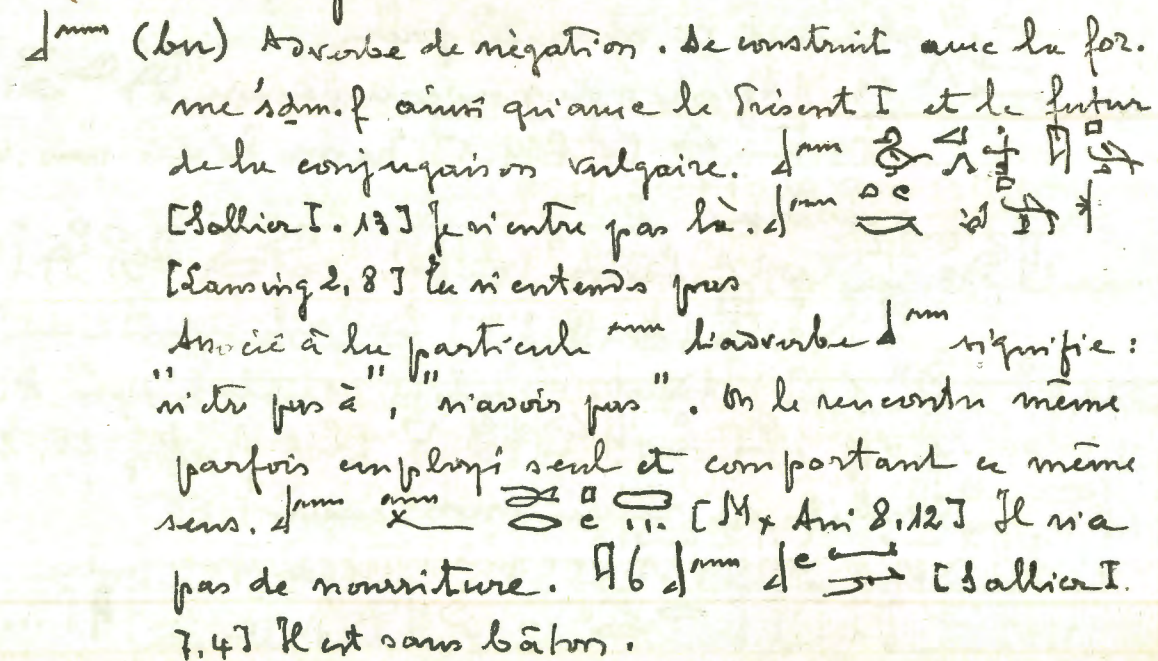 (bn) Adverbe de négation. Se construit avec la for.
me śdm.f ainsi qu'avec le Présent I et le futur
de la conjugaison vulgaire.
[Sallier I. 13] Je n'entre pas là.
[Lansing 2, 8] Tu n'entends pas
Associé à la particule l'adverbe signifie:
"n'être pas à", "n'avoir pas". On le rencontre même
parfois employé seul et comportant ce même
sens. [Mx Ani 8,12] Il n'a
pas de nourriture. [Sallier I.
7,4] Il est sans bâton.